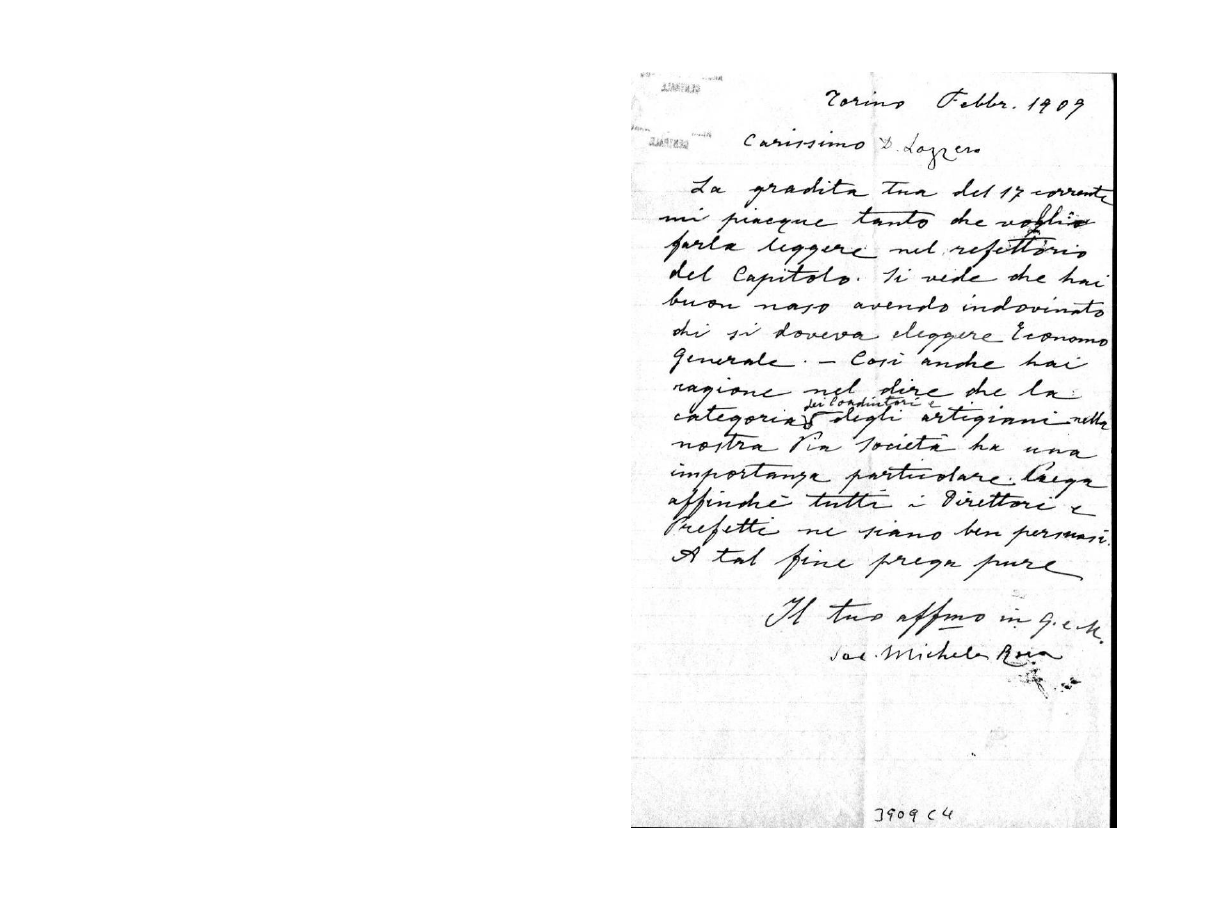 Torino Febbr. 1909
Carissimo D. Lazzero
La gradita tua del 17 corrente
mi piacque tanto che voglio
farla leggere nel refettorio
del Capitolo. Si vede che hai
buon naso avendo indovinato
chi si doveva eleggere Economo
Generale. - Così anche hai
ragione nel dire che la
dei Coadiutori e
categoria degli artigiani nella
nostra Pia Società ha una
importanza particolare. Prega
affinchè tutti i Direttori e
Prefetti ne siano ben persuasi.
A tal fine prega pure
Il tuo affmo in G. e M.
Sac. Michele Rua
3909 C4
GENERALE
GENERALE